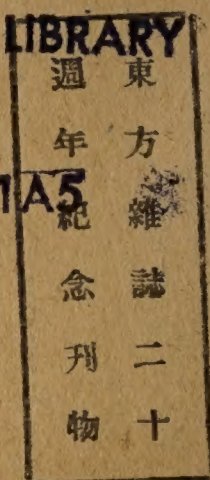 LIBRARY
東方雜誌二十
週年紀念刊物
1A5